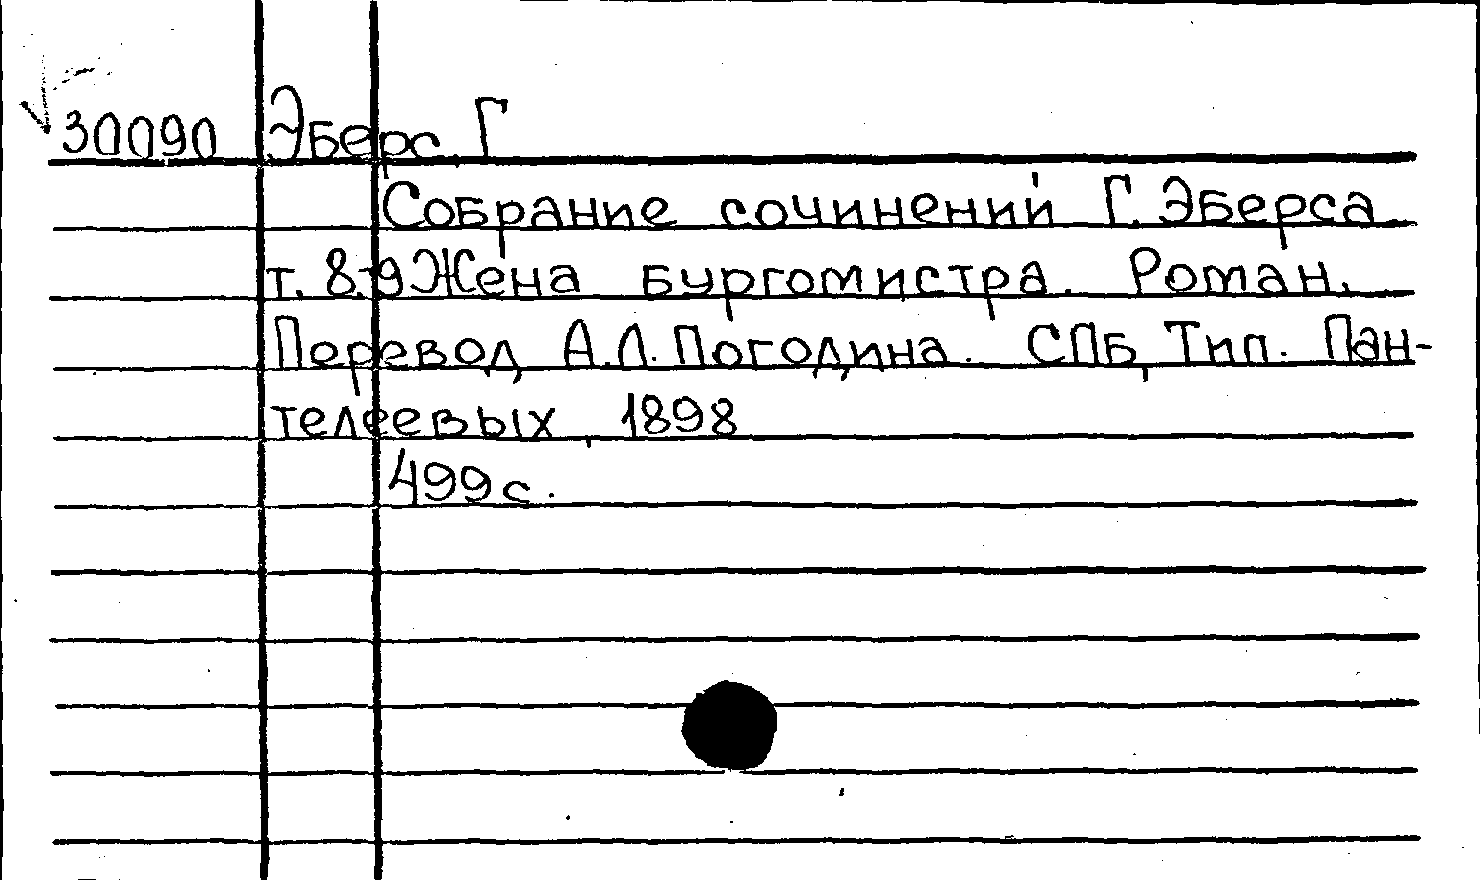 30090 Эберс, Г
Собрание сочинений Г. Эберса
т. 8-9 Жена бургомистра. Роман.
Перевод А.Л. Погодина. СПб, Тип. Пан-
телеевых, 1898
499 с.